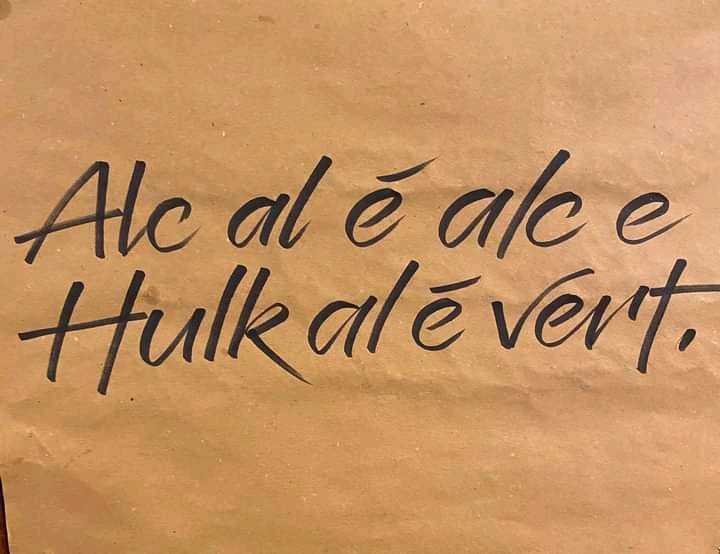 Alc al é alc e
Hulk al é vert.